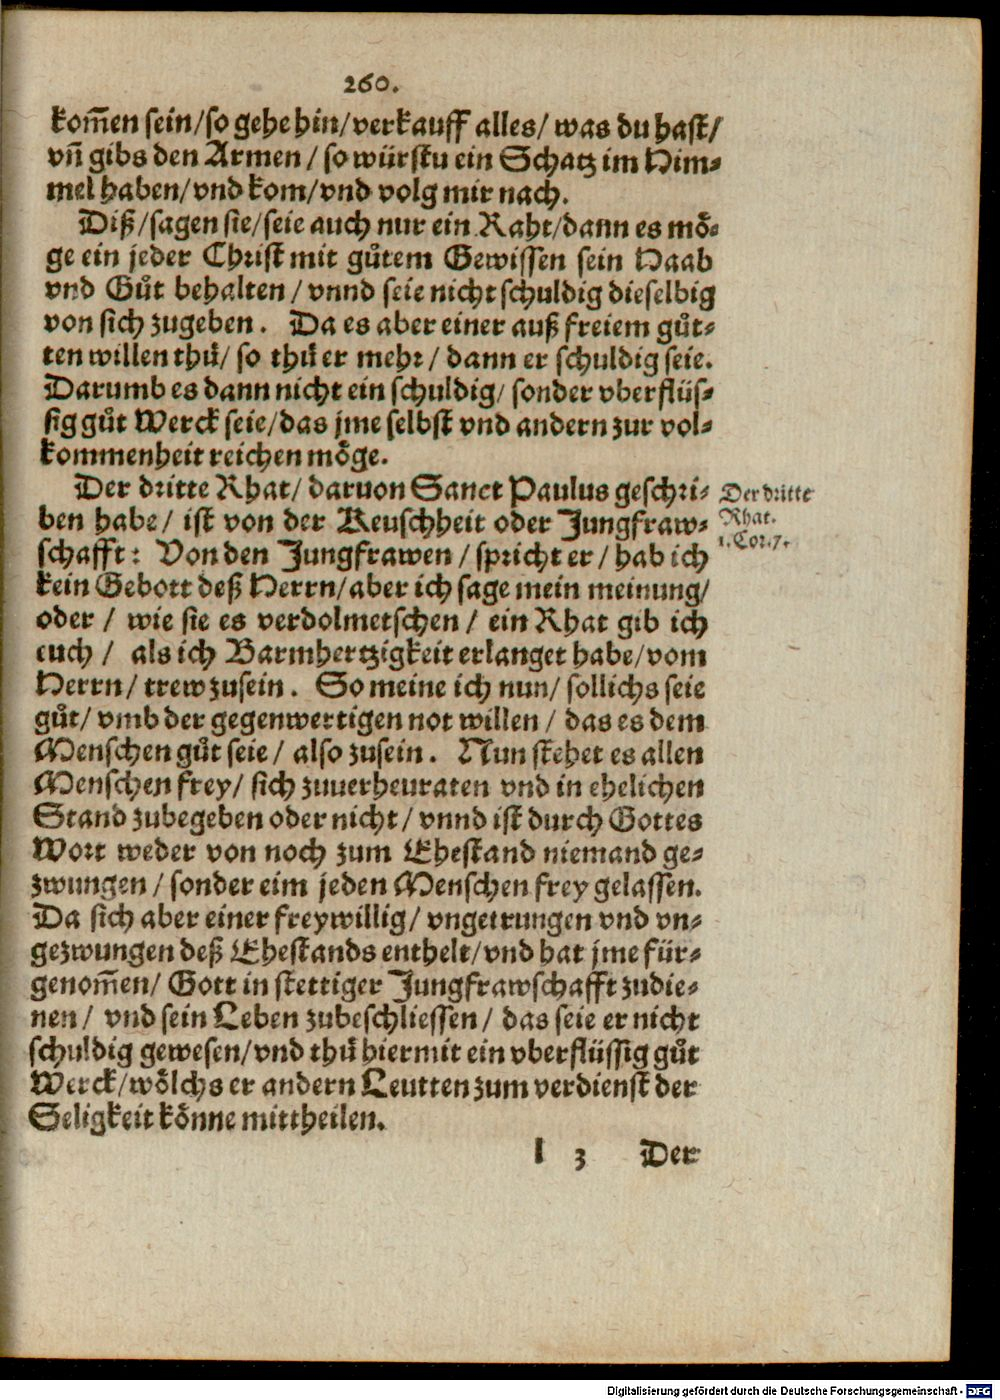 260.
kom̃en sein/so gehe hin/verkauff alles/ was du hast/
vñ gibs den Armen / so würstu ein Schatz im Him-
mel haben/vnd kom/vnd volg mir nach.
Diß/sagen sie/seie auch nur ein Raht/dann es mö-
ge ein jeder Christ mit gůtem Gewissen sein Haab
vnd Gůt behalten / vnnd seie nicht schuldig dieselbig
von sich zugeben. Da es aber einer auß freiem gůt-
ten willen thů/ so thů er mehr / dann er schuldig seie.
Darumb es dann nicht ein schuldig/ sonder vberflüs-
sig gůt Werck seie/das jme selbst vnd andern zur vol-
kommenheit reichen möge.
Der dritte Rhat/ daruon Sanct Paulus geschri-
ben habe/ ist von der Keuschheit oder Jungfraw-
schafft: Von den Jungfrawen / spricht er / hab ich
kein Gebott deß Herrn/aber ich sage mein meinung/
oder / wie sie es verdolmetschen / ein Rhat gib ich
euch / als ich Barmhertzigkeit erlanget habe/vom
Herrn/ trew zusein. So meine ich nun/ sollichs seie
gůt/ vmb der gegenwertigen not willen / das es dem
Menschen gůt seie / also zusein. Nun stehet es allen
Menschen frey/ sich zuuerheuraten vnd in ehelichen
Stand zubegeben oder nicht/ vnnd ist durch Gottes
Wort weder von noch zum Ehestand niemand ge-
zwungen / sonder eim jeden Menschen frey gelassen.
Da sich aber einer freywillig/ vngetrungen vnd vn-
gezwungen deß Ehestands enthelt/vnd hat jme für-
genom̃en/ Gott in stettiger Jungfrawschafft zudie-
nen / vnd sein Leben zubeschliessen / das seie er nicht
schuldig gewesen/vnd thů hiermit ein vberflüssig gůt
Werck/wölchs er andern Leutten zum verdienst der
Seligkeit könne mittheilen.
l 3 Der
Der dritte
Rhat.
1. Cor. 7.
Digitalisierung gefördert durch die Deutsche Forschungsgemeinschaft - DFG